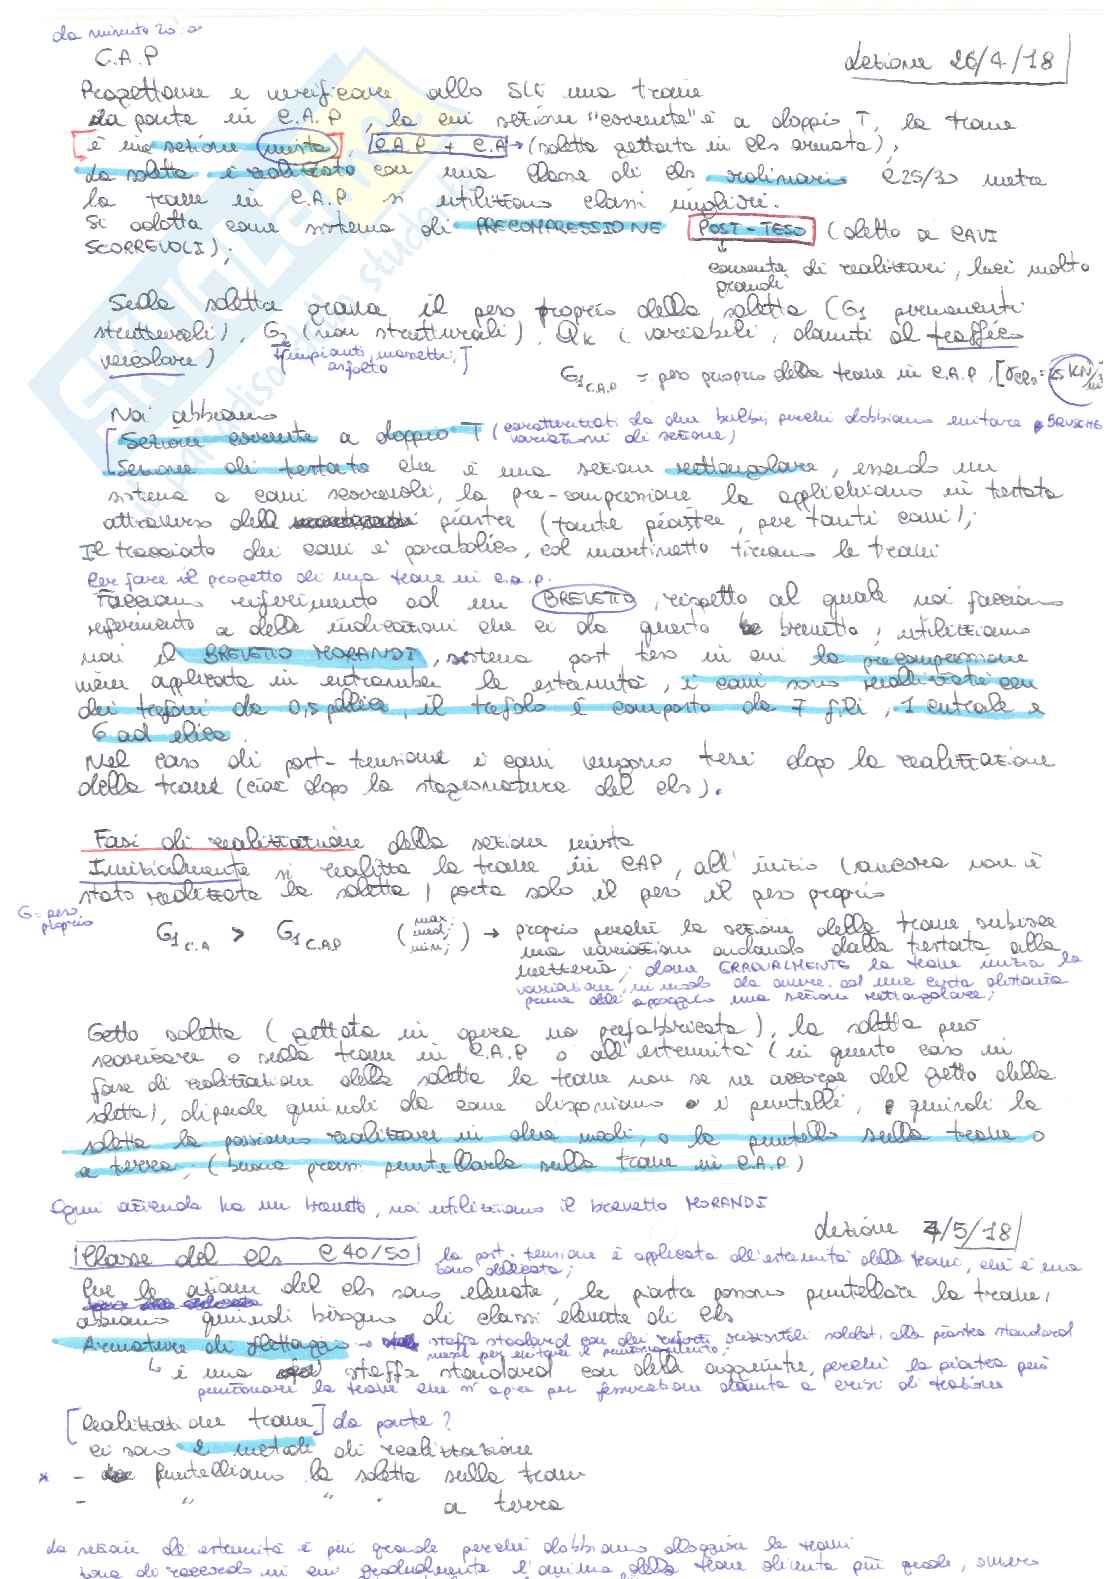 da minuto 20:
C.A.P
Lezione 26/4/18
Progettare e verificare allo SLU una trave
da ponte in C.A.P, la cui sezione "corrente" è a doppio T, la trave
è una sezione mista, C.A.P + C.A → (soletta gettata in cls armata),
la soletta è realizzata con una classe di cls ordinario C25/30 mentre
la trave in C.A.P si utilizzano classi migliori.
Si adotta come sistema di PRECOMPRESSIONE POST-TESO (detto a CAVI
SCORREVOLI);
consente di realizzare, luci molto
grandi
Sulla soletta grava il peso proprio della soletta (G1 permanenti
strutturali), G2 (non strutturali), Qk (variabili, dovuti al traffico
veicolare)
[impianti, massetti,]
asfalto
G1 C.A.P = peso proprio della trave in C.A.P, [γcls = 25 KN/m³
Noi abbiamo
Sezione corrente a doppio T (caratterizzati da due bulbi, perché dobbiamo evitare BRUSCHE
variazioni di sezione)
Sezione di testata che è una sezione rettangolare, essendo un
sistema a cavi scorrevoli, la pre-compressione la applichiamo in testata
attraverso delle piastre (tante piastre, per tanti cavi);
Il tracciato dei cavi è parabolico, col martinetto tiriamo le travi
Per fare il progetto di una trave in c.a.p.
Facciamo riferimento ad un BREVETTO, rispetto al quale noi facciamo
riferimento a delle indicazioni che ci da questo brevetto; utilizziamo
noi il BREVETTO MORANDI, sistema post teso in cui la precompressione
viene applicata in entrambe le estremità, i cavi sono realizzati con
dei trefoli da 0,5 pollici, il trefolo è composto da 7 fili, 1 centrale e
6 ad elica.
Nel caso di post-tensione i cavi vengono tesi dopo la realizzazione
della trave (cioè dopo la stagionatura del cls).
Fasi di realizzazione della sezione mista
Inizialmente si realizza la trave in CAP, all'inizio (ancora non è
stata realizzata la soletta) porta solo il peso il peso proprio
G = peso
proprio
G1 C.A > G1 C.A.P (max; med; min;) → proprio perché la sezione della trave subisce
una variazione andando dalla testata alla
mezzeria; dove GRADUALMENTE la trave inizia la
variazione, in modo da avere ad una certa distanza
prima dell'appoggio una sezione rettangolare;
Getto soletta (gettata in opera no prefabbricata), la soletta può
scaricare o sulla trave in C.A.P o all'estremità (in questo caso in
fase di realizzazione della soletta la trave non se ne accorge del getto della
soletta), dipende quindi da come disponiamo i puntelli, quindi la
soletta la possiamo realizzare in due modi, o la puntello sulla trave o
a terra; (buona prassi puntellarla sulla trave in C.A.P)
Ogni azienda ha un brevetto, noi utilizziamo il brevetto MORANDI
Lezione 7/5/18
Classe del cls C40/50 la post-tensione è applicata all'estremità della trave, che è una
zona delicata;
Per le azioni del cls sono elevate, le piastre possono puntellare la trave,
abbiamo quindi bisogno di classi elevate di cls
Armature di frettaggio → staffa standard con dei rinforzi orizzontali saldati alla piastra standard
messe per evitare il punzonamento;
↳ è una staffa standard con delle aggiunte, perché la piastra può
punzonare la trave che si apre per fessurazione dovuta a crisi di trazione
[Realizzazione trave] da ponte?
ci sono 2 metodi di realizzazione
* - Puntelliamo la soletta sulla trave
- " " " a terra
La sezione di estremità è più grande perché dobbiamo alloggiare le travi
zona di raccordo in cui gradualmente l'anima della trave diventa più grande, ovvero